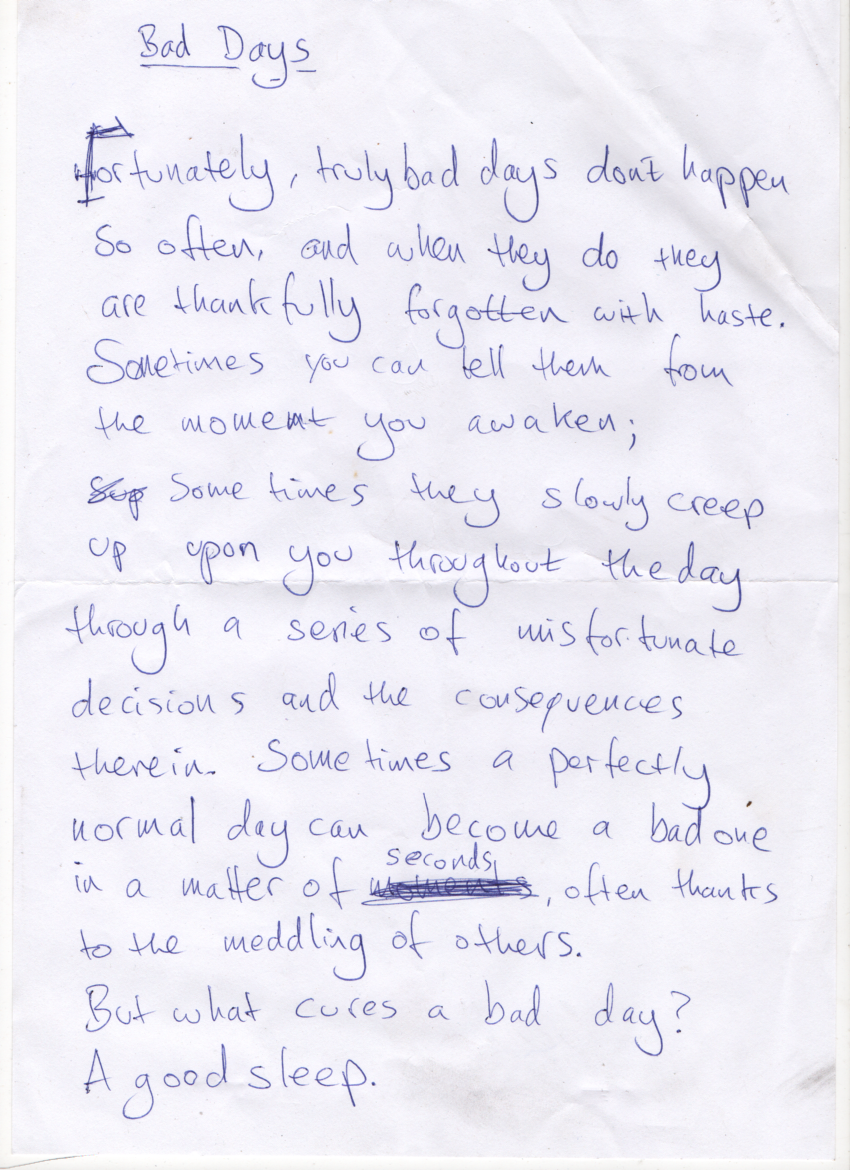 Bad Days
Fortunately, truly bad days don't happen
So often, and when they do they
are thankfully forgotten with haste.
Sometimes you can tell them from
the moment you awaken;
Sometimes they slowly creep
up upon you throughout the day
through a series of misfortunate
decisions and the consequences
therein. Sometimes a perfectly
normal day can become a bad one
in a matter of seconds, often thanks
to the meddling of others.
But what cures a bad day?
A good sleep.